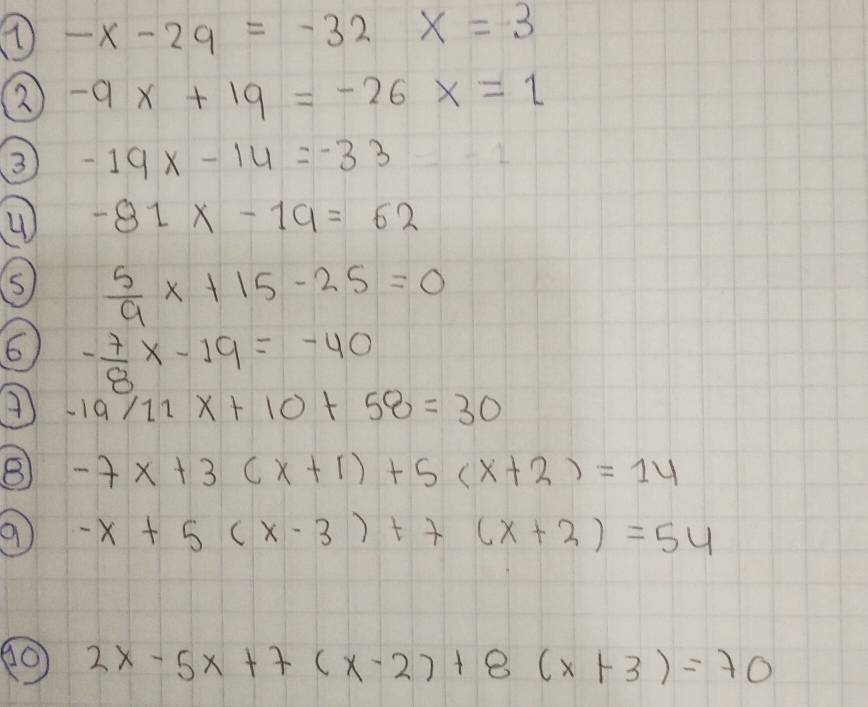 ① -x - 29 = -32 x = 3
② -9x + 19 = -26 x = 1
③ -19x - 14 = -33
④ -81x - 19 = 62
⑤ 5/9 x + 15 - 25 = 0
⑥ -7/8 x - 19 = -40
⑦ -19/11 x + 10 + 58 = 30
⑧ -7x + 3 (x + 1) + 5 (x + 2) = 14
⑨ -x + 5 (x - 3) + 7 (x + 2) = 54
⑩ 2x - 5x + 7 (x - 2) + 8 (x + 3) = 70